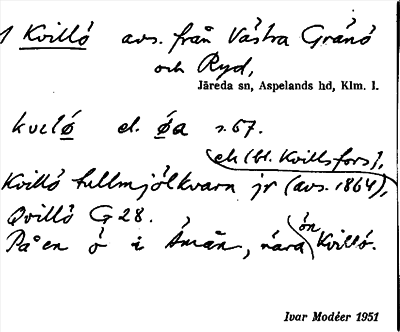 1 Kvillö avs. från Västra Gränö
och Ryd,
Järeda sn, Aspelands hd, Klm. l.
kvilø el. øa s. 67.
ek (bl. Kvillsfors),
Kvillö tullmjölkvarn jr (avs. 1864),
Qvillö G 28.
På en ö i Åmån, nära ön Kvillö.
Ivar Modéer 1951